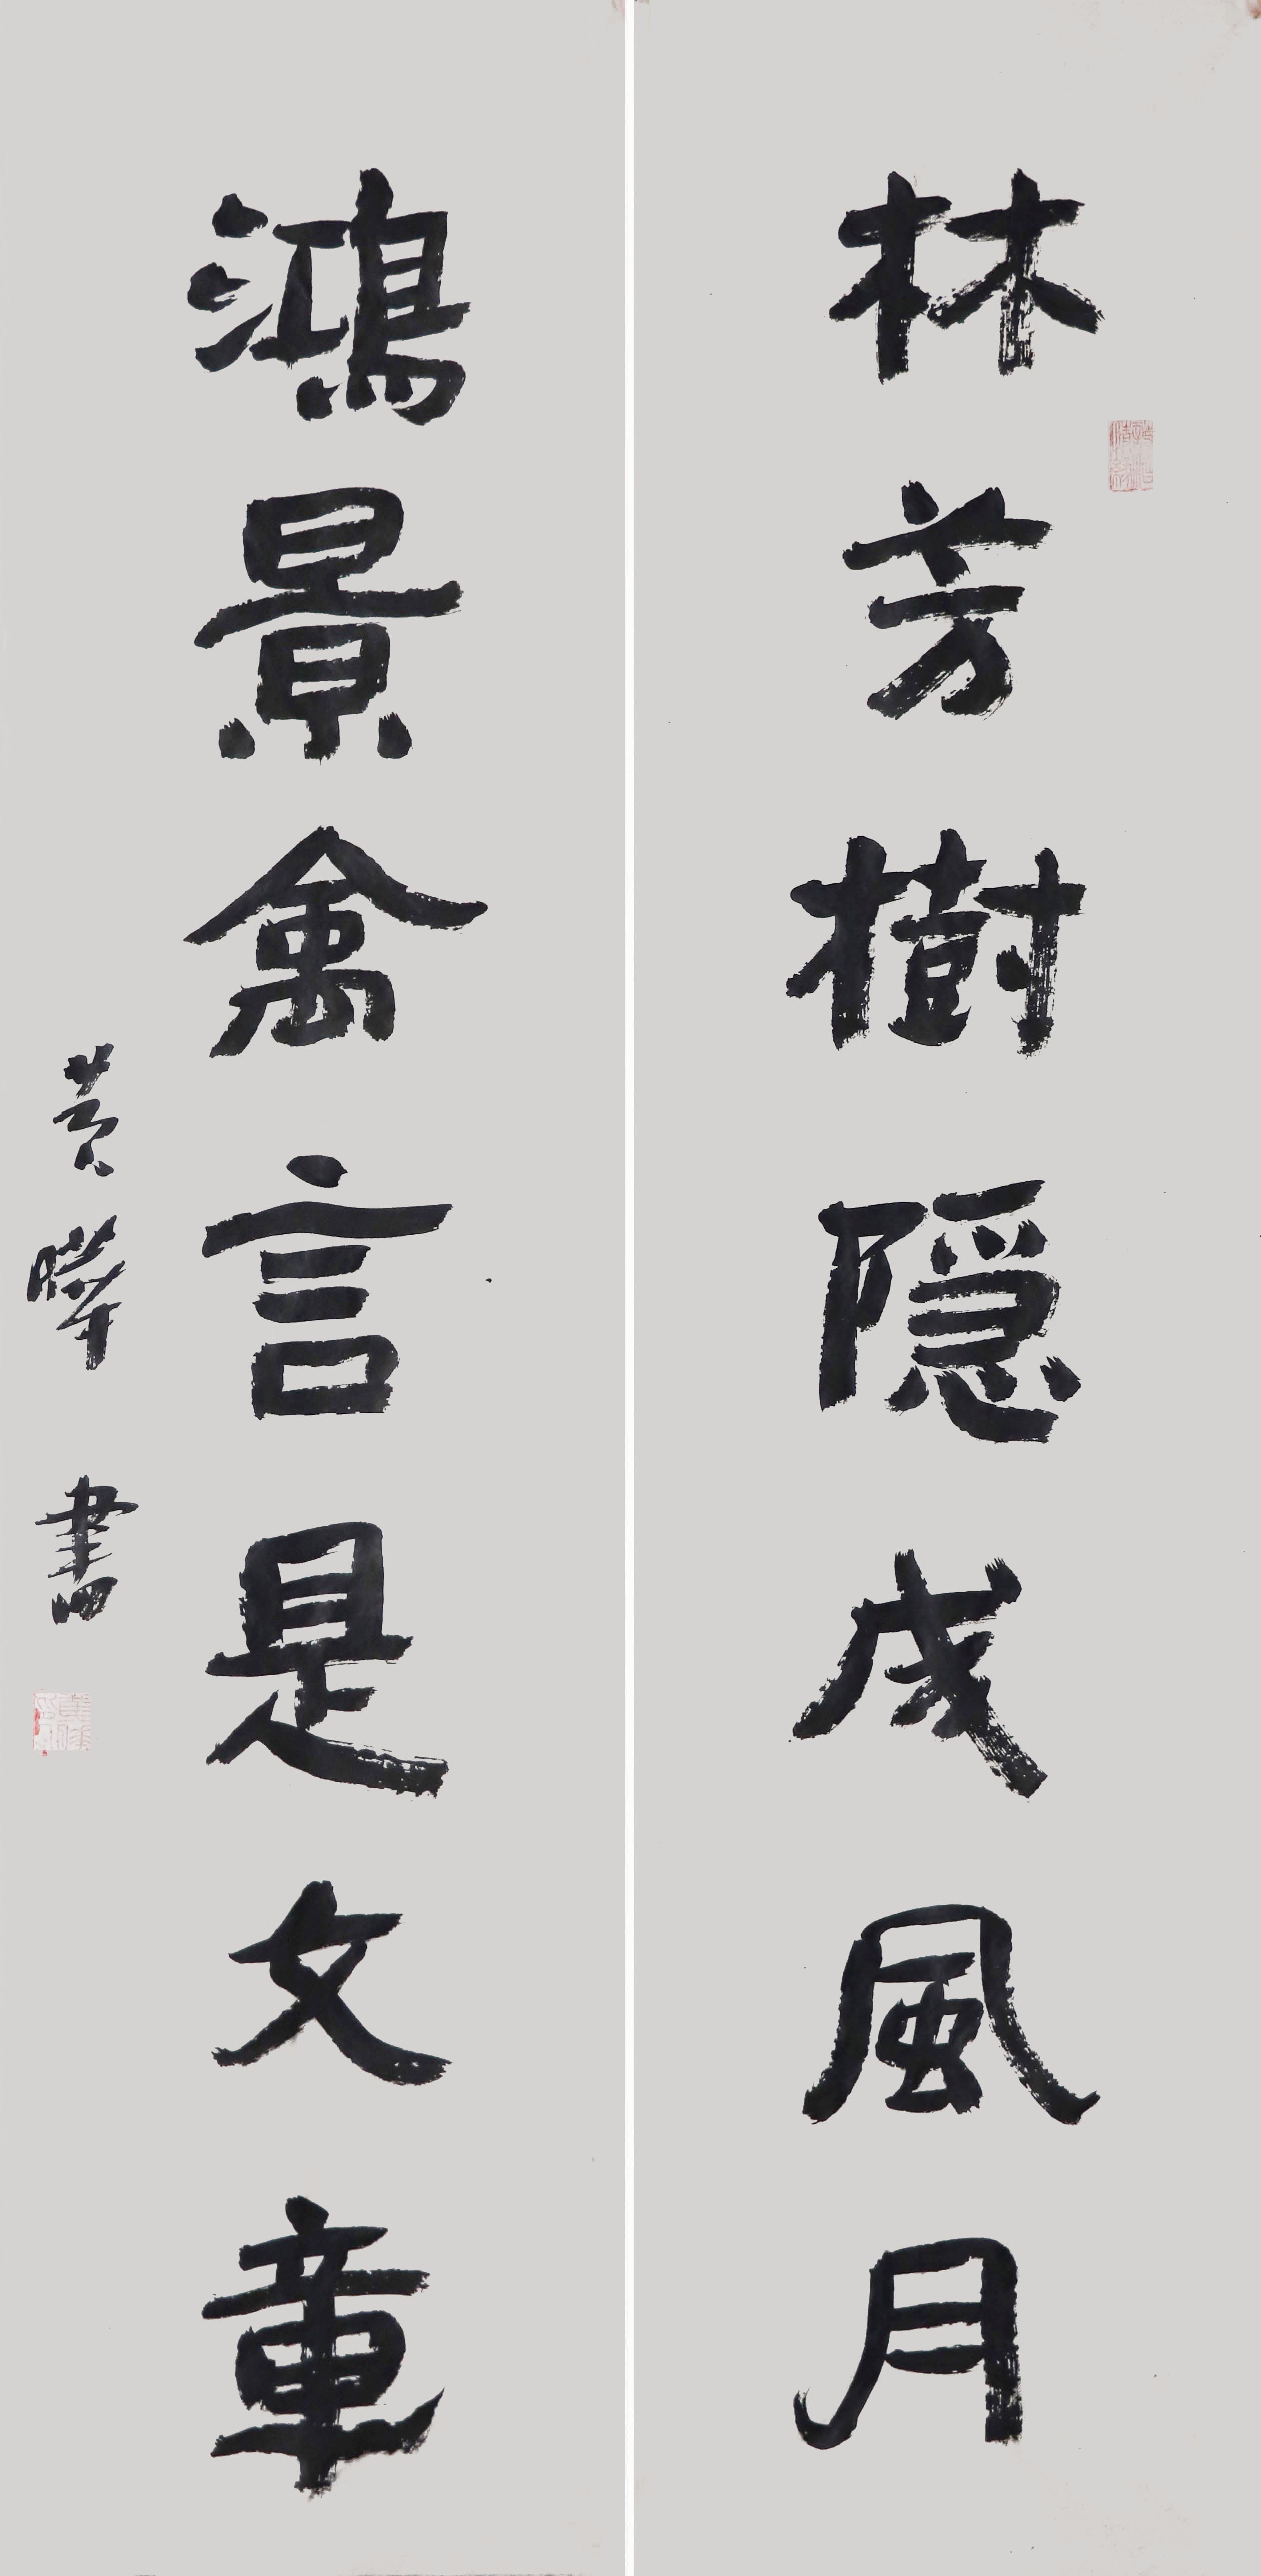 林芳樹隐成風月
鴻景禽言是文章
黄曄書